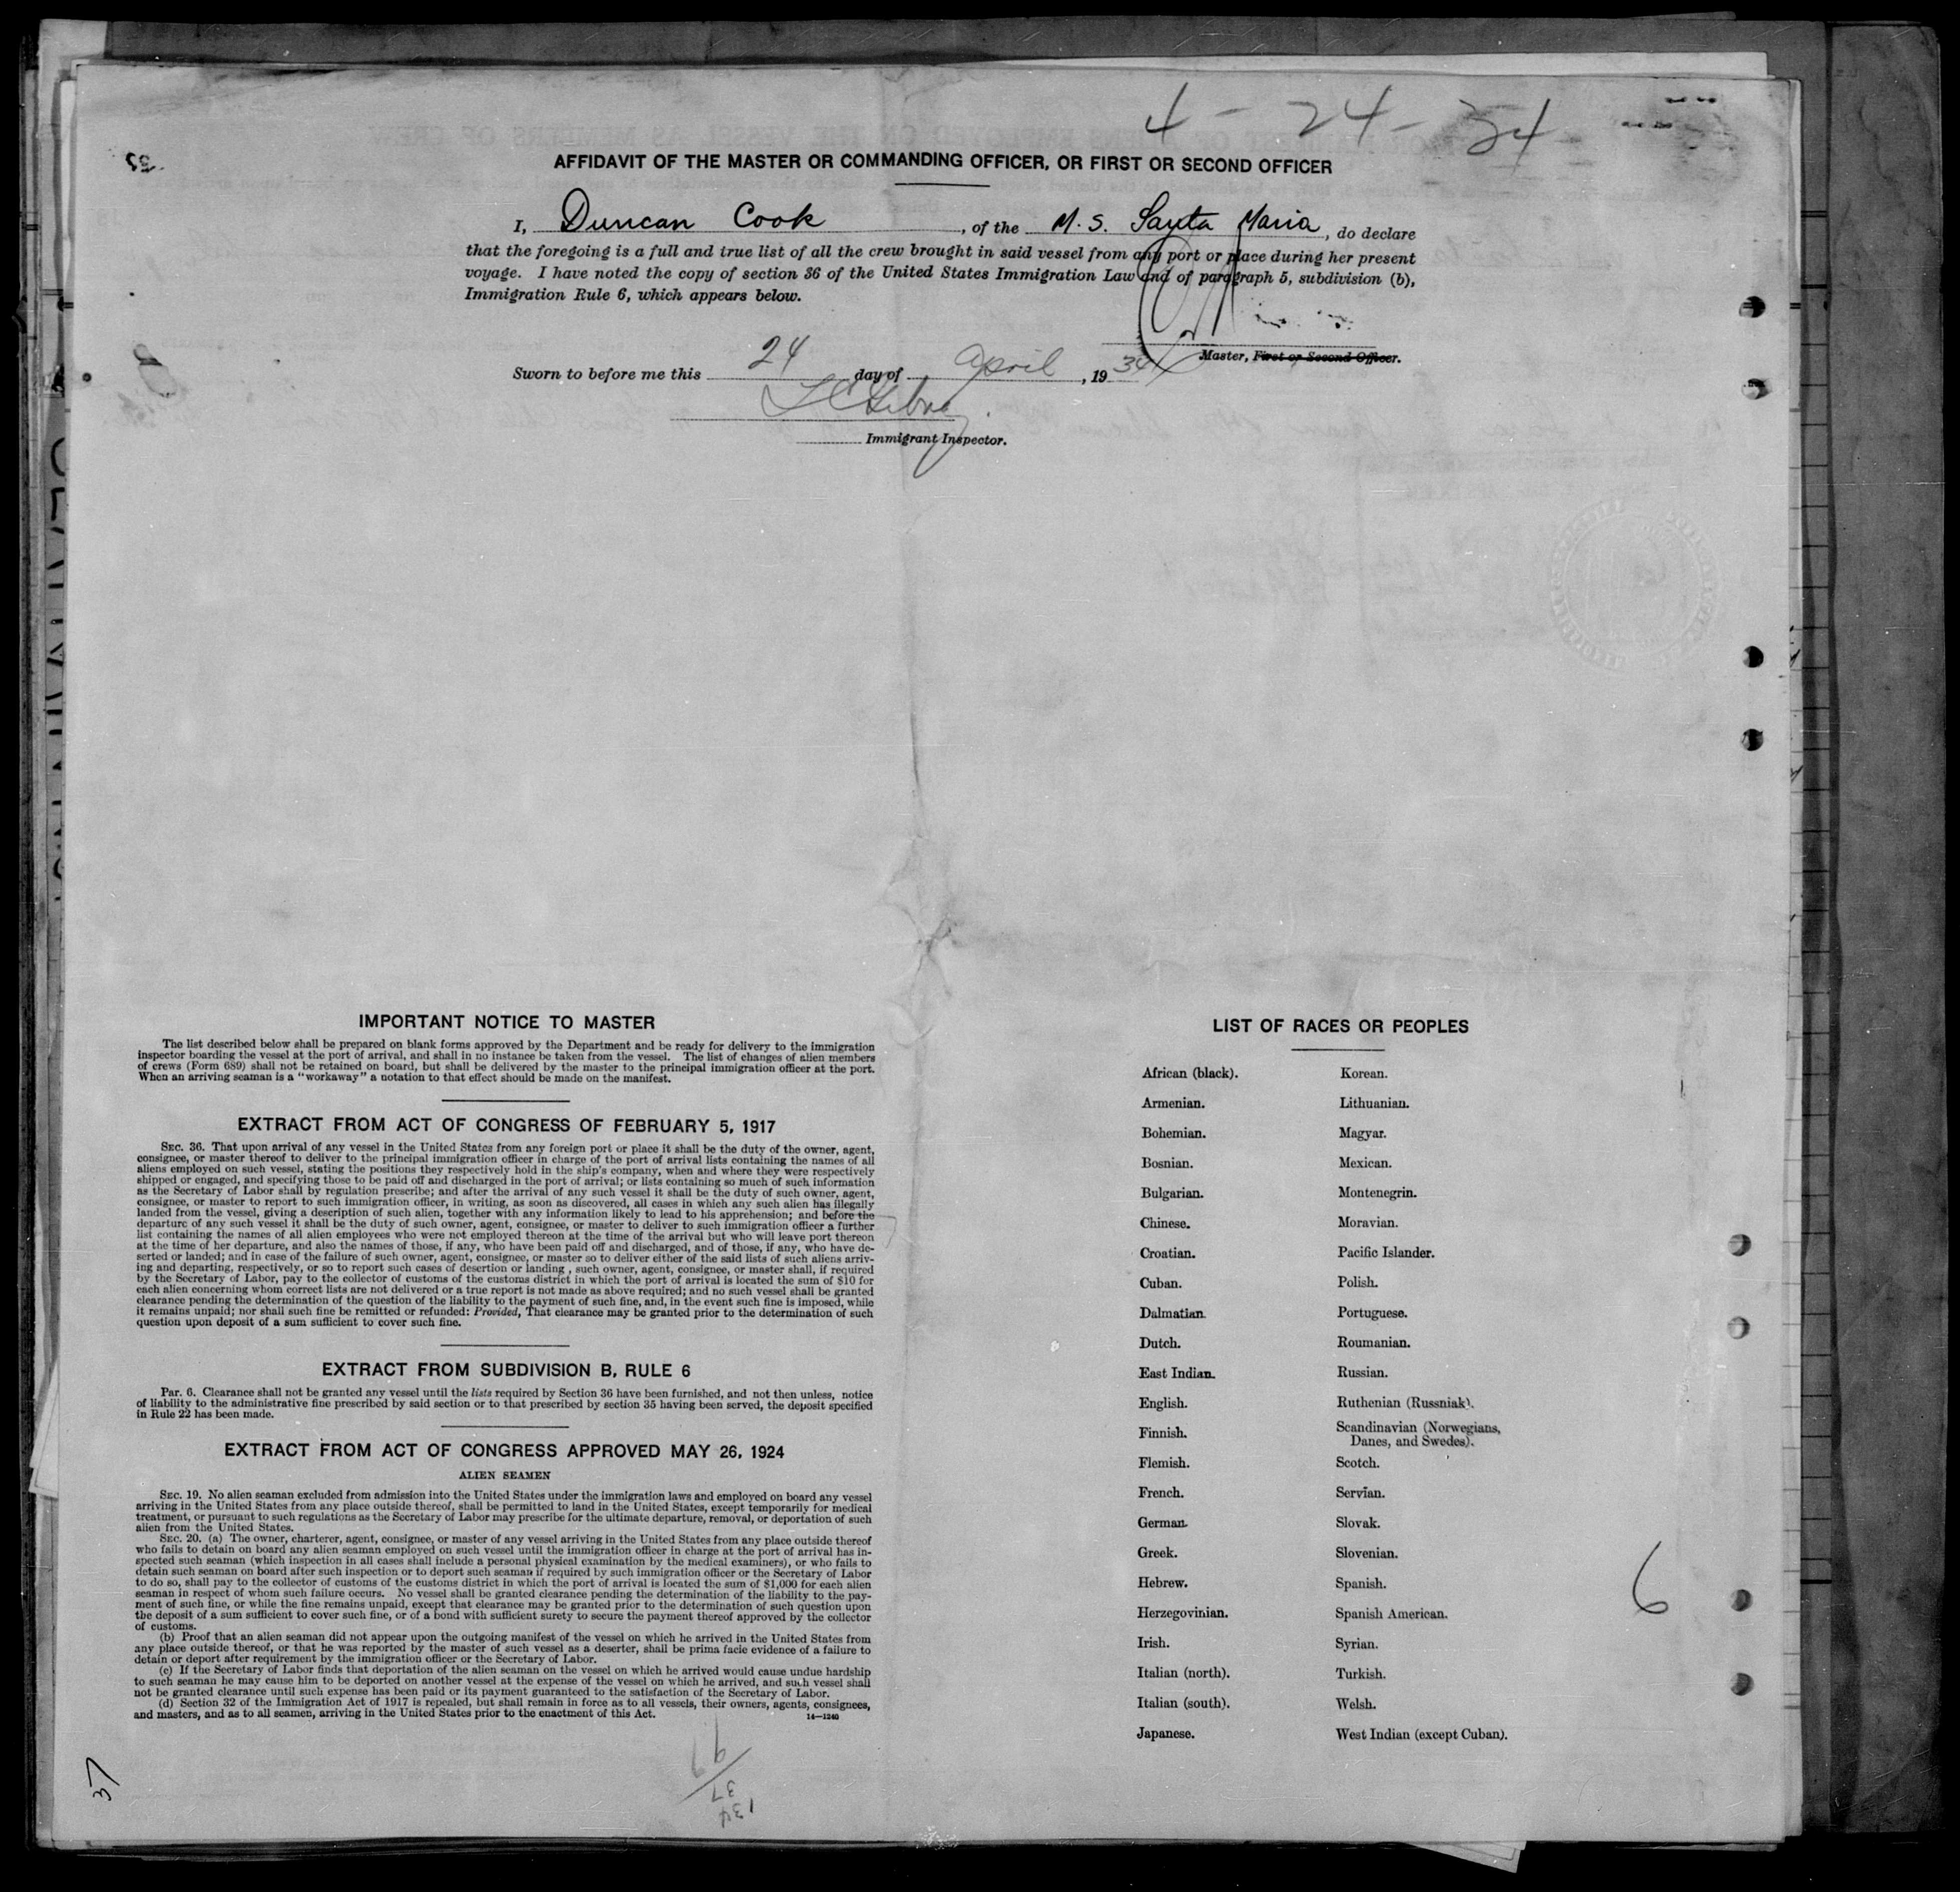 4 - 24 - 34
AFFIDAVIT OF THE MASTER OR COMMANDING OFFICER, OR FIRST OR SECOND OFFICER
I, Duncan Cook, of the M. S. Santa Maria, do declare
that the foregoing is a full and true list of all the crew brought in said vessel from any port or place during her present
voyage. I have noted the copy of section 36 of the United States Immigration Law and of paragraph 5, subdivision (b),
Immigration Rule 6, which appears below.
Master, First or Second Officer.
Sworn to before me this 24 day of April, 1934
Immigrant Inspector.
IMPORTANT NOTICE TO MASTER
The list described below shall be prepared on blank forms approved by the Department and be ready for delivery to the immigration
inspector boarding the vessel at the port of arrival, and shall in no instance be taken from the vessel. The list of changes of alien members
of crews (Form 689) shall not be retained on board, but shall be delivered by the master to the principal immigration officer at the port.
When an arriving seaman is a "workaway" a notation to that effect should be made on the manifest.
EXTRACT FROM ACT OF CONGRESS OF FEBRUARY 5, 1917
SEC. 36. That upon arrival of any vessel in the United States from any foreign port or place it shall be the duty of the owner, agent,
consignee, or master thereof to deliver to the principal immigration officer in charge of the port of arrival lists containing the names of all
aliens employed on such vessel, stating the positions they respectively hold in the ship's company, when and where they were respectively
shipped or engaged, and specifying those to be paid off and discharged in the port of arrival; or lists containing so much of such information
as the Secretary of Labor shall by regulation prescribe; and after the arrival of any such vessel it shall be the duty of such owner, agent,
consignee, or master to report to such immigration officer, in writing, as soon as discovered, all cases in which any such alien has illegally
landed from the vessel, giving a description of such alien, together with any information likely to lead to his apprehension; and before the
departure of any such vessel it shall be the duty of such owner, agent, consignee, or master to deliver to such immigration officer a further
list containing the names of all alien employees who were not employed thereon at the time of the arrival but who will leave port thereon
at the time of her departure, and also the names of those, if any, who have been paid off and discharged, and of those, if any, who have de-
serted or landed; and in case of the failure of such owner, agent, consignee, or master so to deliver either of the said lists of such aliens arriv-
ing and departing, respectively, or so to report such cases of desertion or landing , such owner, agent, consignee, or master shall, if required
by the Secretary of Labor, pay to the collector of customs of the customs district in which the port of arrival is located the sum of $10 for
each alien concerning whom correct lists are not delivered or a true report is not made as above required; and no such vessel shall be granted
clearance pending the determination of the question of the liability to the payment of such fine, and, in the event such fine is imposed, while
it remains unpaid; nor shall such fine be remitted or refunded: Provided, That clearance may be granted prior to the determination of such
question upon deposit of a sum sufficient to cover such fine.
EXTRACT FROM SUBDIVISION B, RULE 6
Par. 6. Clearance shall not be granted any vessel until the lists required by Section 36 have been furnished, and not then unless, notice
of liability to the administrative fine prescribed by said section or to that prescribed by section 35 having been served, the deposit specified
in Rule 22 has been made.
EXTRACT FROM ACT OF CONGRESS APPROVED MAY 26, 1924
ALIEN SEAMEN
SEC. 19. No alien seaman excluded from admission into the United States under the immigration laws and employed on board any vessel
arriving in the United States from any place outside thereof, shall be permitted to land in the United States, except temporarily for medical
treatment, or pursuant to such regulations as the Secretary of Labor may prescribe for the ultimate departure, removal, or deportation of such
alien from the United States.
SEC. 20. (a) The owner, charterer, agent, consignee, or master of any vessel arriving in the United States from any place outside thereof
who fails to detain on board any alien seaman employed on such vessel until the immigration officer in charge at the port of arrival has in-
spected such seaman (which inspection in all cases shall include a personal physical examination by the medical examiners), or who fails to
detain such seaman on board after such inspection or to deport such seaman if required by such immigration officer or the Secretary of Labor
to do so, shall pay to the collector of customs of the customs district in which the port of arrival is located the sum of $1,000 for each alien
seaman in respect of whom such failure occurs. No vessel shall be granted clearance pending the determination of the liability to the pay-
ment of such fine, or while the fine remains unpaid, except that clearance may be granted prior to the determination of such question upon
the deposit of a sum sufficient to cover such fine, or of a bond with sufficient surety to secure the payment thereof approved by the collector
of customs.
(b) Proof that an alien seaman did not appear upon the outgoing manifest of the vessel on which he arrived in the United States from
any place outside thereof, or that he was reported by the master of such vessel as a deserter, shall be prima facie evidence of a failure to
detain or deport after requirement by the immigration officer or the Secretary of Labor.
(c) If the Secretary of Labor finds that deportation of the alien seaman on the vessel on which he arrived would cause undue hardship
to such seaman he may cause him to be deported on another vessel at the expense of the vessel on which he arrived, and such vessel shall
not be granted clearance until such expense has been paid or its payment guaranteed to the satisfaction of the Secretary of Labor.
(d) Section 32 of the Immigration Act of 1917 is repealed, but shall remain in force as to all vessels, their owners, agents, consignees,
and masters, and as to all seamen, arriving in the United States prior to the enactment of this Act.
14—1240
LIST OF RACES OR PEOPLES
African (black). Korean.
Armenian. Lithuanian.
Bohemian. Magyar.
Bosnian. Mexican.
Bulgarian. Montenegrin.
Chinese. Moravian.
Croatian. Pacific Islander.
Cuban. Polish.
Dalmatian. Portuguese.
Dutch. Roumanian.
East Indian. Russian.
English. Ruthenian (Russniak).
Finnish. Scandinavian (Norwegians,
Danes, and Swedes).
Flemish. Scotch.
French. Servian.
German. Slovak.
Greek. Slovenian.
Hebrew. Spanish.
Herzegovinian. Spanish American.
Irish. Syrian.
Italian (north). Turkish.
Italian (south). Welsh.
Japanese. West Indian (except Cuban).
6
37